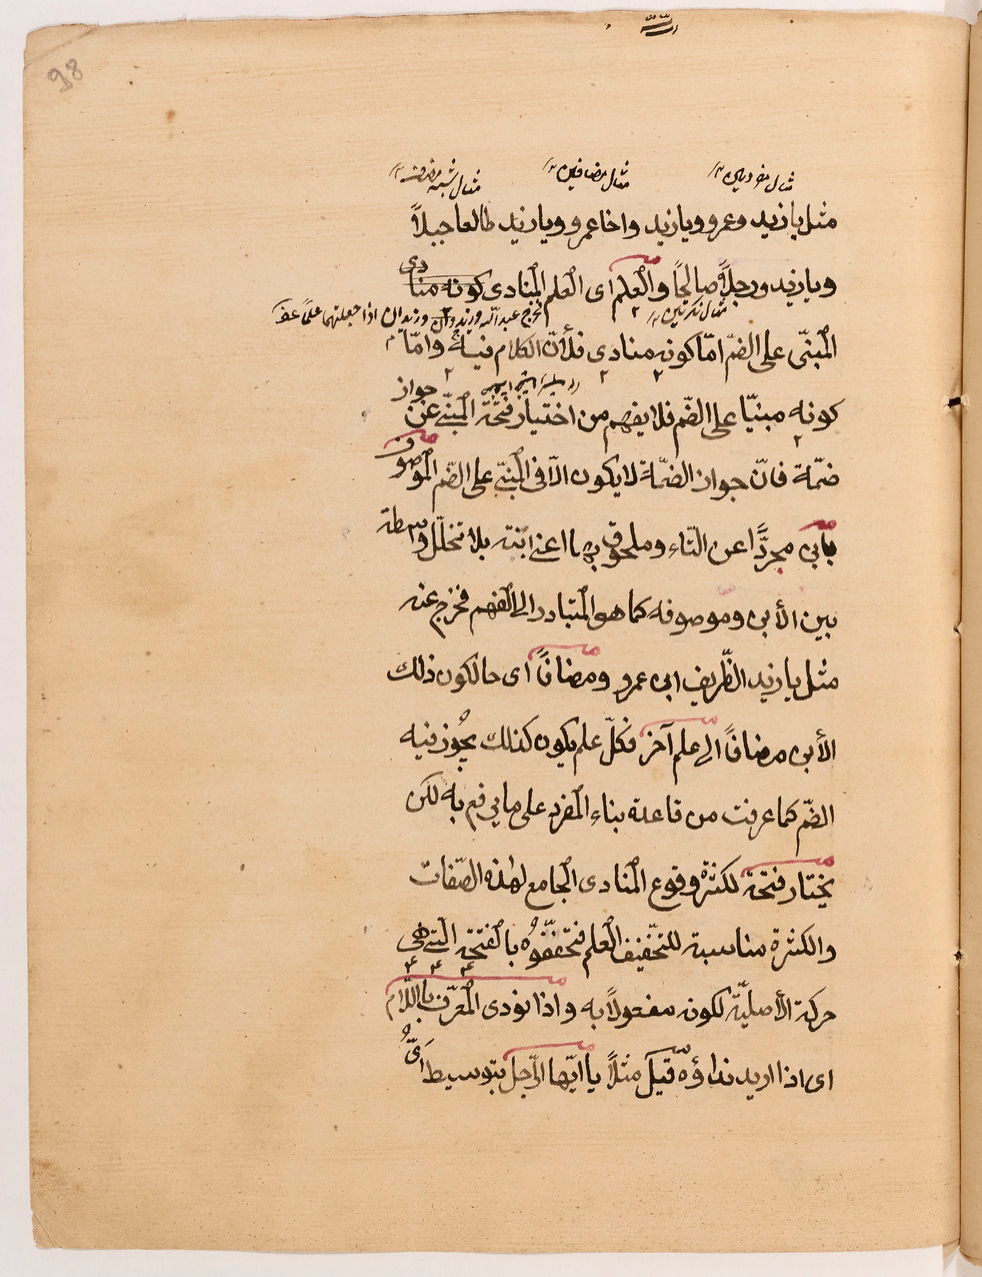 98
مثال مضافين
مثال شبه
مثل يا زيد وعمرو ويا زيد واخا عمرو ويا زيد طالعا جبلاً
ويا زيد ورجلاً صالحًا والعلم اى العلم المنادى كونه منادى
مثال نكرتين
عبد الله وزيدان اذا جعلتهما علماً
المبنّى على الضمّ امّا كونه منادى فلأنّ الكلام فيه وامّا
كونه مبنيّا على الضّم فلا يفهم من اختيار فتحة المبنّى عن جواز
ضمّة فانّ جواز الضمّة لا يكون الاّ فى المبنّى على الضّم الموصوف
بابن مجردًّا عن التّاء وملحوق بها اعنى ابنته بلا تخلّل واسطة
بين الأبن وموصوفه كما هو المتبادر الى الفهم فخرج عنه
مثل يا زيد الظّريف ابن عمرو ومضافاً اى حال كون ذلك
الأبن مضافاً الى علم آخر فكلّ علم يكون كذلك يجوز فيه
الضّم كما عرفت من قاعدة بناء المفرد على ما يرفع به لكن
يختار فتحه لكثرة وقوع المنادى الجامع لهذه الصّفات
والكثرة مناسبة للتخّفيف العلم فتخفّفوه بالفتحة الّتى هى
حركة الأصليّة لكونه مفعولاً به واذا نودى المعرّف باللّام
اى اذا اريد نداؤه قيل مثلاً يا ايّها الرّجل بتوسيط اىّ